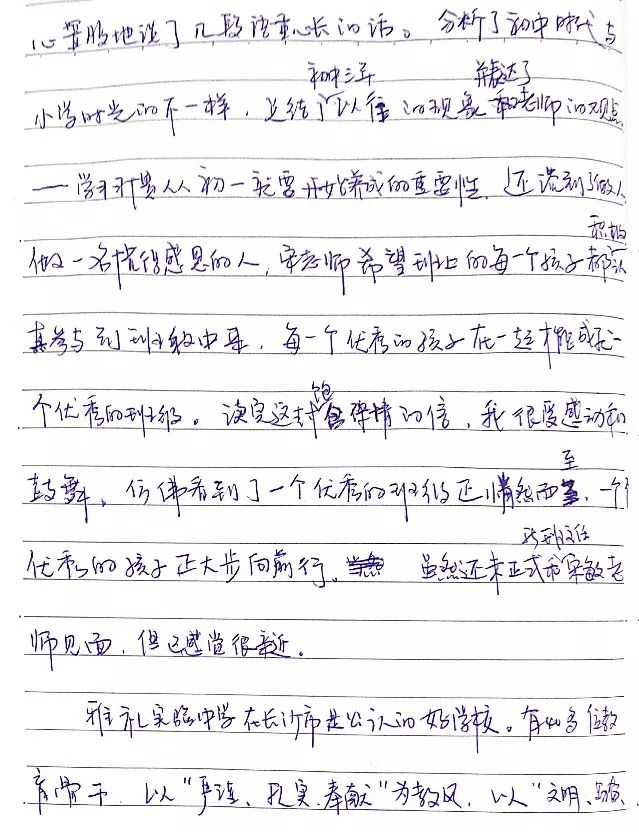 心置腹地说了几段语重心长的话。分析了初中时代与
初中三年 并表达了
小学时光的不一样，总结了以往的现象和老师的观点
——学习对贵人从初一就要开始养成的重要性，还谈到了做人
积极
做一名懂得感恩的人，宋老师希望到班的每一个孩子都认
真参与到班级中来，每一个优秀的孩子在一起才能成就一
个优秀的班级。读完这封饱含深情的信，我很受感动和
至
鼓舞。仿佛看到了一个优秀的班级正悄然而，一个个
优秀的孩子正大步向前行。虽然还未正式和宋敏老
师见面，但已感觉很亲近。
雅礼实验中学在长沙市是公认的好学校。有40多位教
育骨干，以“严谨、扎实、奉献”为教风，以“文明、